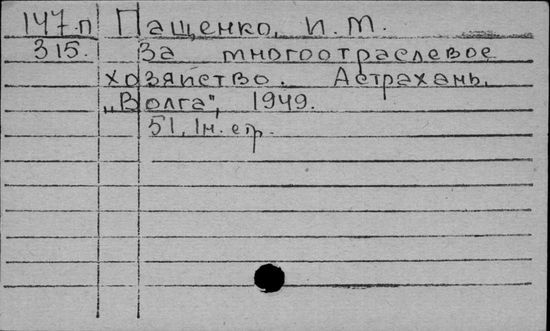 147.п Пащенко, И.М.
315. За многоотраслевое
хозяйство. Астрахань,
„Волга", 1949.
51, 1н. стр.